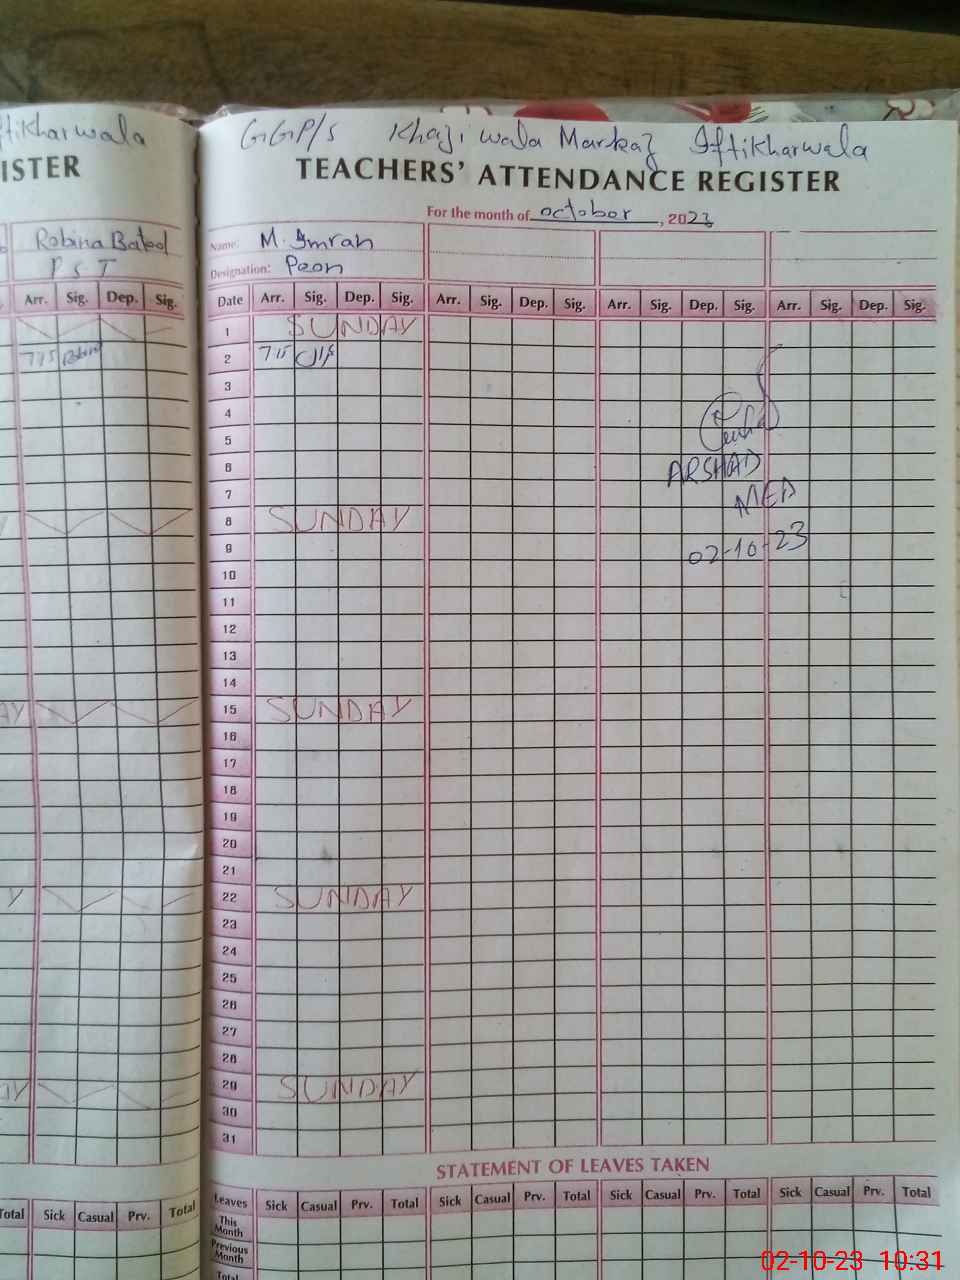 ftikharwala
ISTER
Robina Batool
P S T
Arr. Sig. Dep. Sig.
7:15
GGP/S Khaji wala Markaz Iftikharwala
TEACHERS' ATTENDANCE REGISTER
For the month of october, 2023
Name: M. Imran
Designation: Peon
Date Arr. Sig. Dep. Sig. Arr. Sig. Dep. Sig. Arr. Sig. Dep. Sig. Arr. Sig. Dep. Sig.
1 SUNDAY
2 7:15
3
4
5
6
ARSHAD
7
MEA
8 SUNDAY
9
02-10-23
10
11
12
13
14
15 SUNDAY
16
17
18
19
20
21
22 SUNDAY
23
24
25
26
27
28
29 SUNDAY
30
31
STATEMENT OF LEAVES TAKEN
Total Sick Casual Prv. Total
Leaves Sick Casual Prv. Total Sick Casual Prv. Total Sick Casual Prv. Total Sick Casual Prv. Total
This
Month
Previous
Month
Total
02-10-23 10:31